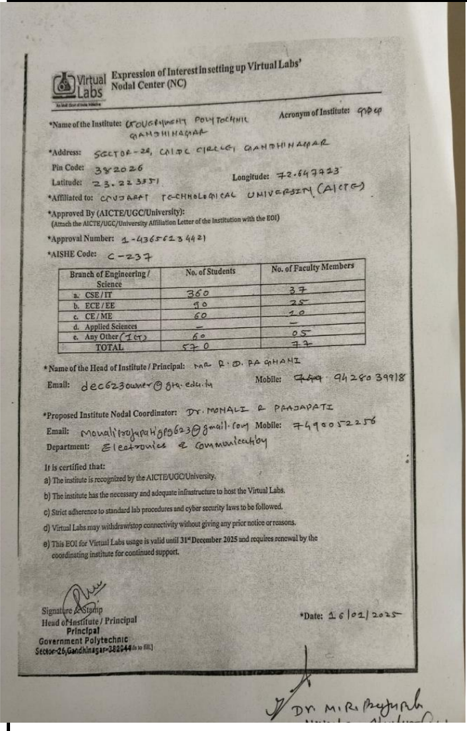 Virtual Labs
Expression of Interest in setting up Virtual Labs'
Nodal Center (NC)
*Name of the Institute: GOVERNMENT POLYTECHNIC Acronym of Institute:
GANDHINAGAR
*Address: SECTOR-26, GIDC CIRCLE, GANDHINAGAR
Pin Code: 382026
Latitude: 23.223351 Longitude: 72.647723
*Affiliated to: GUJARAT TECHNOLOGICAL UNIVERSITY (AICTE)
*Approved By (AICTE/UGC/University):
(Attach the AICTE/UGC/University Affiliation Letter of the Institution with the EOI)
*Approval Number: 1-43656134421
*AISHE Code: C-237
Branch of Engineering / Science No. of Students No. of Faculty Members
a. CSE/IT 360 37
b. ECE/EE 90 25
c. CE/ME 60 10
d. Applied Sciences - -
e. Any Other (ICT) 60 05
TOTAL 570 77
*Name of the Head of Institute / Principal: MR R. D. RAGHANI
Email: Mobile: 9428039918
*Proposed Institute Nodal Coordinator: Dr. MONALI R PRAJAPATI
Email: Mobile: 7490052256
Department: Electronics & Communication
It is certified that:
a) The institute is recognized by the AICTE/UGC/University.
b) The institute has the necessary and adequate infrastructure to host the Virtual Labs.
c) Strict adherence to standard lab procedures and cyber security laws to be followed.
d) Virtual Labs may withdraw/stop connectivity without giving any prior notice or reasons.
e) This EOI for Virtual Labs usage is valid until 31st December 2025 and requires renewal by the
coordinating institute for continued support.
Signature & Stamp
Head of Institute / Principal *Date: 16/01/2025
Principal
Government Polytechnic
Sector-26, Gandhinagar-382044
Dr. M.R. Prajapati